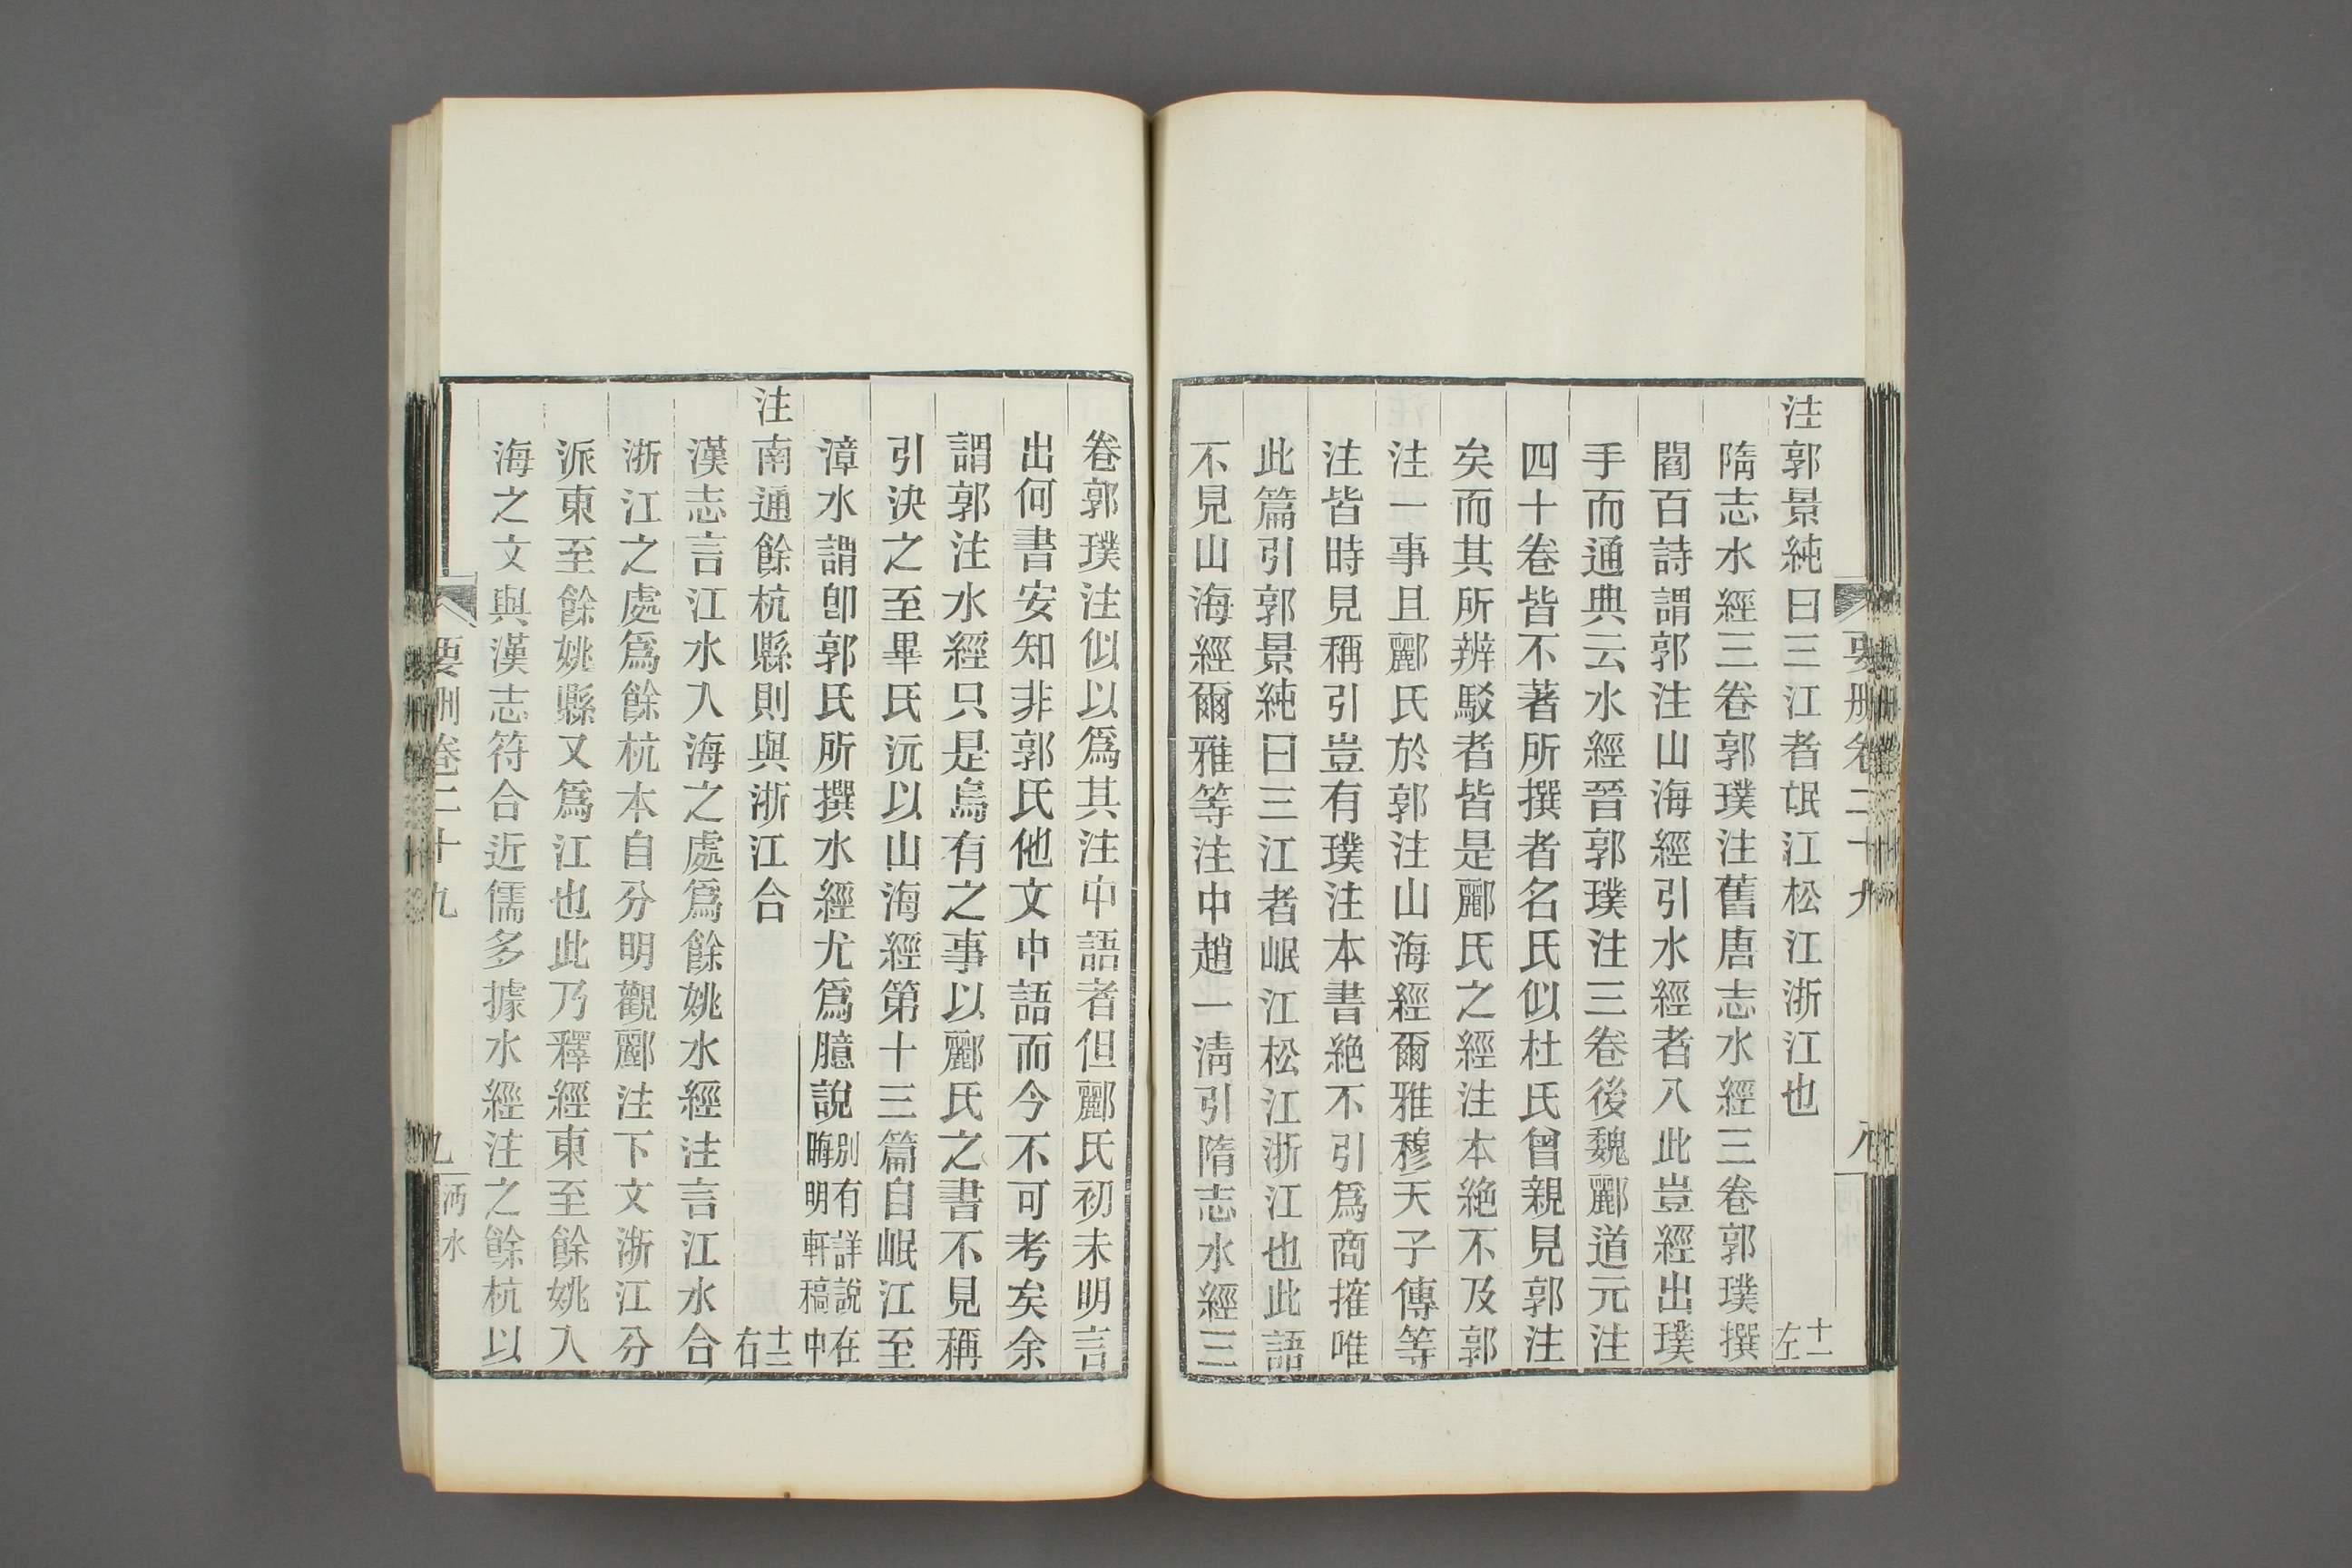 要刪卷二十九
八
注郭景純曰三江者岷江松江浙江也 十一左
隋志水經三卷郭璞注舊唐志水經三卷郭璞撰
閻百詩謂郭注山海經引水經者八此豈經出璞
手而通典云水經晉郭璞注三卷後魏酈道元注
四十卷皆不著所撰者名氏似杜氏曾親見郭注
矣而其所辨駁者皆是酈氏之經注本絶不及郭
注一事且酈氏於郭注山海經爾雅穆天子傳等
注皆時見稱引豈有璞注本書絶不引爲商搉唯
此篇引郭景純曰三江者岷江松江浙江也此語
不見山海經爾雅等注中趙一淸引隋志水經三
卷郭璞注似以爲其注中語者但酈氏初未明言
出何書安知非郭氏他文中語而今不可考矣余
謂郭注水經只是烏有之事以酈氏之書不見稱
引決之至畢氏沅以山海經第十三篇自岷江至
漳水謂卽郭氏所撰水經尤爲臆說別有詳說在晦明軒稿中
注南通餘杭縣則與浙江合 十二右
漢志言江水入海之處爲餘姚水經注言江水合
浙江之處爲餘杭本自分明觀酈注下文浙江分
派東至餘姚縣又爲江也此乃釋經東至餘姚入
海之文與漢志符合近儒多據水經注之餘杭以
要刪卷二十九
九
沔水